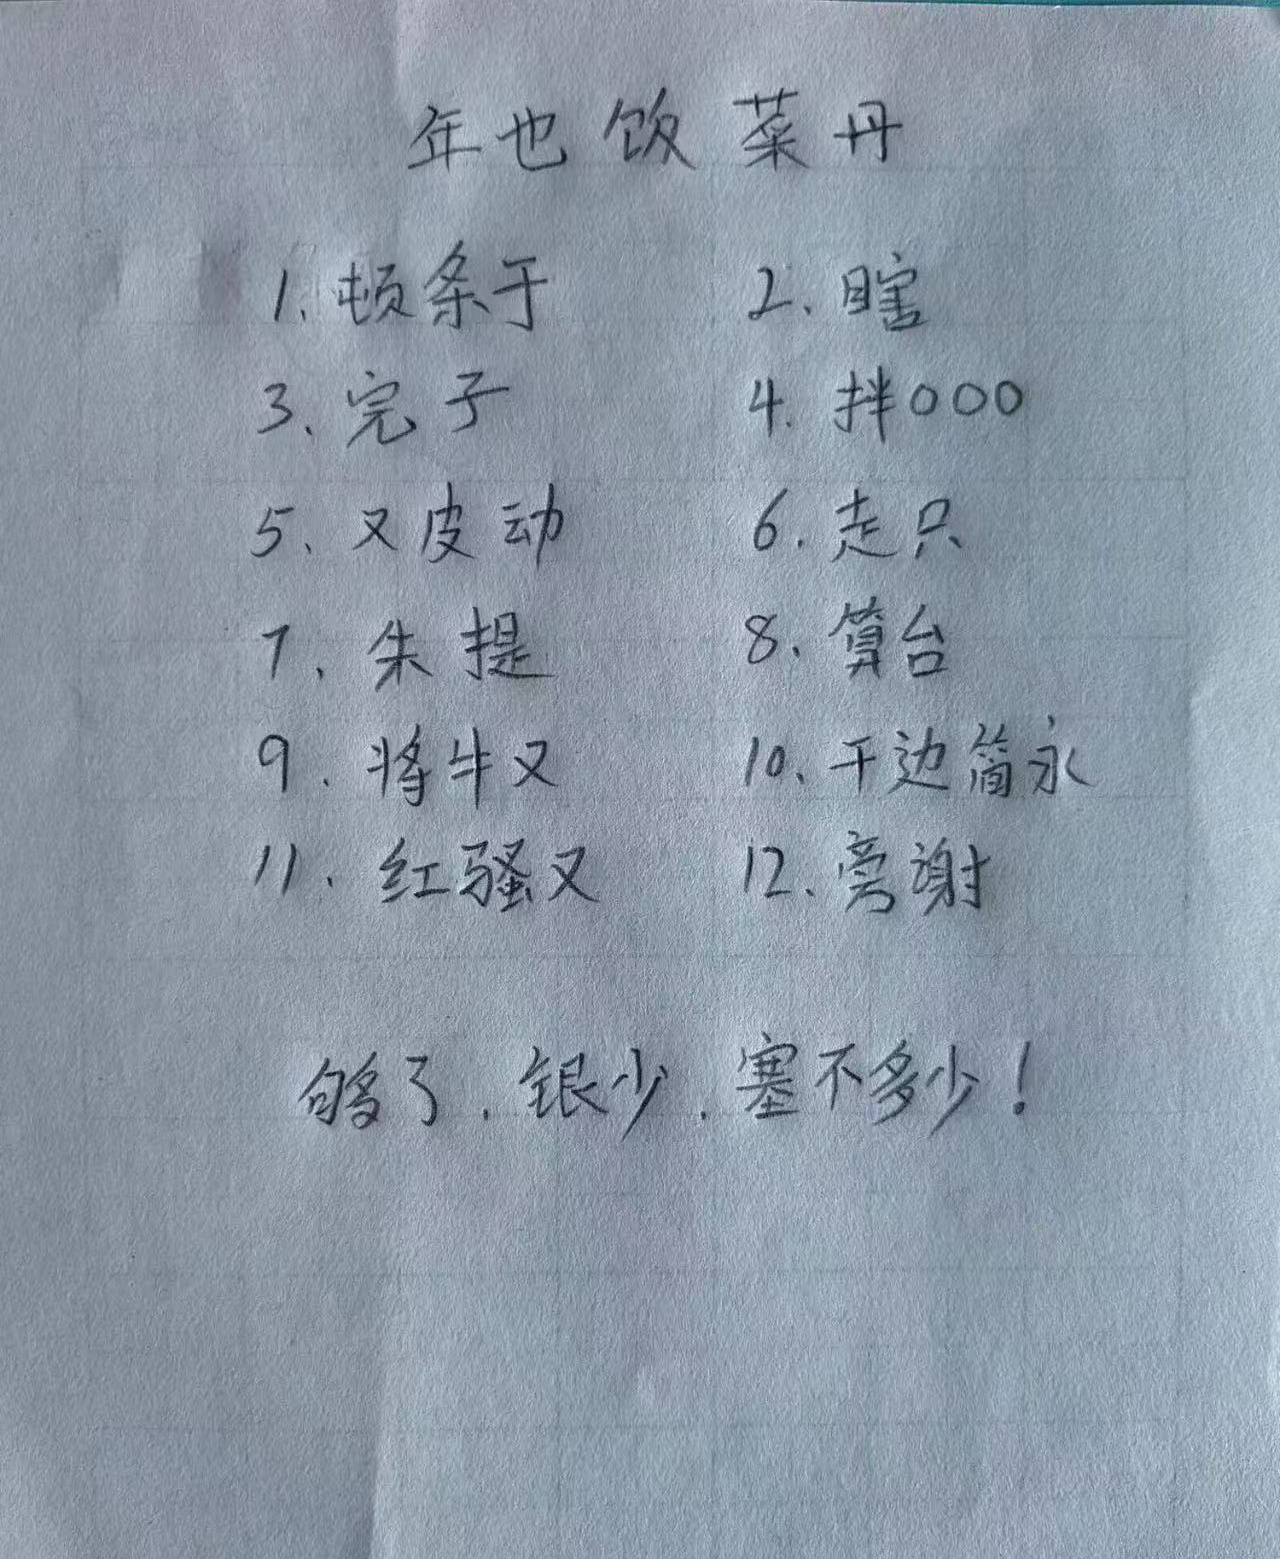 年也饭菜丹
1. 顿条于 2. 瞎
3. 完子 4. 拌000
5. 又皮动 6. 走只
7. 朱提 8. 算台
9. 将牛又 10. 干边简永
11. 红骚又 12. 旁谢
够了.银少.塞不多少!